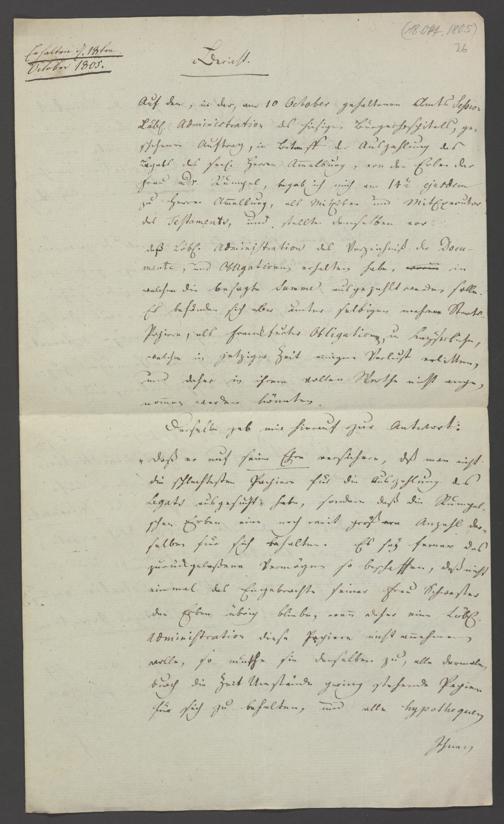 (18. Oct. 1805)
26
Erhalten d. 18ten
October 1805.
Bericht.
Auf den, in der, am 10 October gehaltenen Amts Session
Löbl. Administration des hiesigen Bürgerhospitals, ge-
schehenen Auftrag, in Betreff der Auszahlung des
Legats des seel. Herrn Amelburg, von den Erben der
Frau Dr. Rumpel, begab ich mich am 14t. ejusdem
zu Herrn Amelburg, als Miterben und Mitexecutor
des Testaments, und stellte demselben vor:
daß Löbl. Administration das Verzeichniß der Docu-
mente, und Obligationen erhalten habe, in
welchen die besagte Summe ausgezahlt werden solle.
Es befänden sich aber unter selbigen mehrere Staats
Papiere, als Frankfurter Obligationen, u.
welche in jetziger Zeit einigen Verlust erlitten,
und daher in ihrem vollen Werthe nicht ange-
nommen werden könnten.
Derselbe gab mir hierauf zur Antwort:
"Daß er auf seine Ehre versichere, daß man nicht
die schlechtesten Papiere für die Auszahlung des
Legats ausgesucht habe, sondern daß die Rumpel-
schen Erben eine noch weit größere Anzahl der-
selben für sich behalten. Es sey ferner das
zurückgelassene Vermögen so beschaffen, daß nicht
einmal das Eingebrachte seiner Frau Schwester
den Erben übrig bliebe, wenn daher eine Löbl.
Administration diese Papiere nicht annehmen
wolle, so muthe sie denselben zu, alle dermalen
durch die Zeit Umstände gering stehende Papiere
für sich zu behalten, und alle Hypothequen
Ihnen